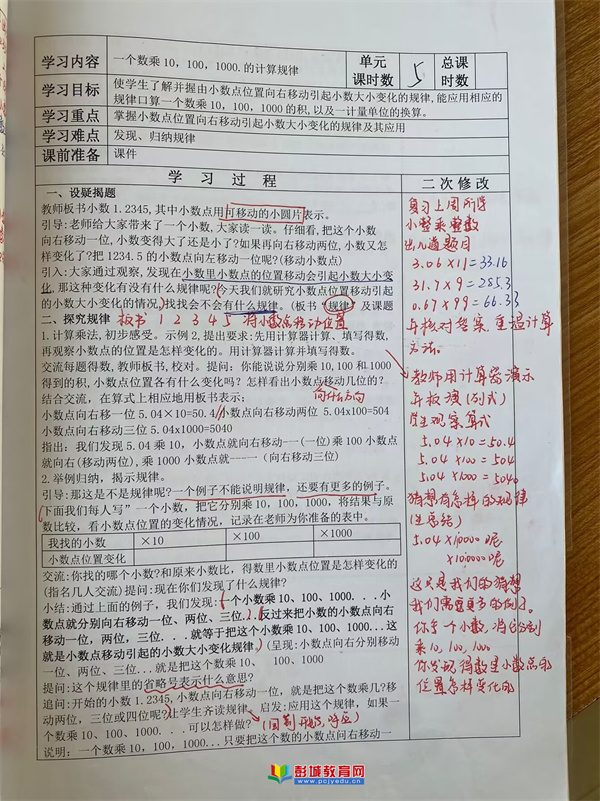 学习内容 一个数乘10，100，1000.的计算规律 单元课时数 5 总课时数
学习目标 使学生了解并握由小数点位置向右移动引起小数大小变化的规律，能应用相应的
规律口算一个数乘10，100，1000的积，以及一计量单位的换算。
学习重点 掌握小数点位置向右移动引起小数大小变化的规律及其应用
学习难点 发现、归纳规律
课前准备 课件
学 习 过 程
一、设疑揭题
教师板书小数1.2345,其中小数点用可移动的小圆片表示。
引导:老师给大家带来了一个小数,大家读一读。仔细看,把这个小数
向右移动一位,小数变得大了还是小了?如果再向右移动两位,小数又怎
样变化了?把1234.5的小数点向左移动一位呢?(移动小数点)
引入:大家通过观察,发现在小数里小数点的位置移动会引起小数大小变
化,那这种变化有没有什么规律呢?(今天我们就研究小数点位置移动引起
的小数大小变化的情况,)找找会不会有什么规律。(板书 规律 及课题
二、探究规律 板书 1 2 3 4 5 将小数点移动位置
1.计算乘法,初步感受。示例2.提出要求:先用计算器计算、填写得数,
再观察小数点的位置是怎样变化的。用计算器计算并填写得数。
交流每题得数,教师板书,校对。提问: 你能说说分别乘10,100和1000
得到的积,小数点位置各有什么变化吗? 怎样看出小数点移动几位的?
向什么方向
结合交流，在算式上相应地用板书表示:
小数点向右移一位 5.04×10=50.4/小数点向右移动两位 5.04x100=504
小数点向右移动三位5.04x1000=5040
指出: 我们发现5.04乘10，小数点就向右移动---(一位)乘100小数点
就向右(移动两位),乘1000小数点就-----（向右移动三位)
2.举例归纳，揭示规律。
引导:那这是不是规律呢?一个例子不能说明规律，还要有更多的例子。
「下面我们每人写” 一个小数，把它分别乘10，100，1000，将结果与原
数比较，看小数点位置的变化情况，记录在老师为你准备的表中。
我找的小数 ×10 ×100 ×1000
小数点位置变化
交流:你找的哪个小数?和原来小数比，得数里小数点位置是怎样变化的
(指名几人交流)提问:现在你们发现了什么规律?
小结:通过上面的例子，我们发现:一个小数乘10、100、1000...小
数点就分别向右移动一位、两位、三位...反过来把小数的小数点向右
移动一位，两位，三位...就等于把这个小数乘10、100、1000...这
就是小数点移动引起的小数大小变化规律。(呈现:小数点向右分别移动
一位、两位、三位...就是把这个数乘10、 100、1000
提问:这个规律里的省略号表示什么意思?
追问:开始的小数1.2345,小数点向右移动一位，就是把这个数乘几?移
动两位，三位或四位呢?让学生齐读规律、启发:应用这个规律，如果一
个数乘10、100、1000....可以怎样做?
说明: 一个数乘10，100，1000...只要把这个数的小数点向右移动一
二次修改
复习上周所学
小数乘整数
出几道题目
3.06×11=33.16
31.7×9=285.3
0.67×99=66.33
再核对答案，重温计算
方法。
教师用计算器演示
再板演(列式)
学生观察算式
5.04×10=50.4
5.04×100=504
5.04×1000=5040
猜想有怎样的规律
(生总结)
5.04×10000呢
×100000呢
这只是我们的猜想
我们需要更多的例子。
你写一个小数，将它分别
乘10, 100, 1000
你发现得数里小数点的
位置怎样变化的
彭城教育网
www.pcjyedu.cn